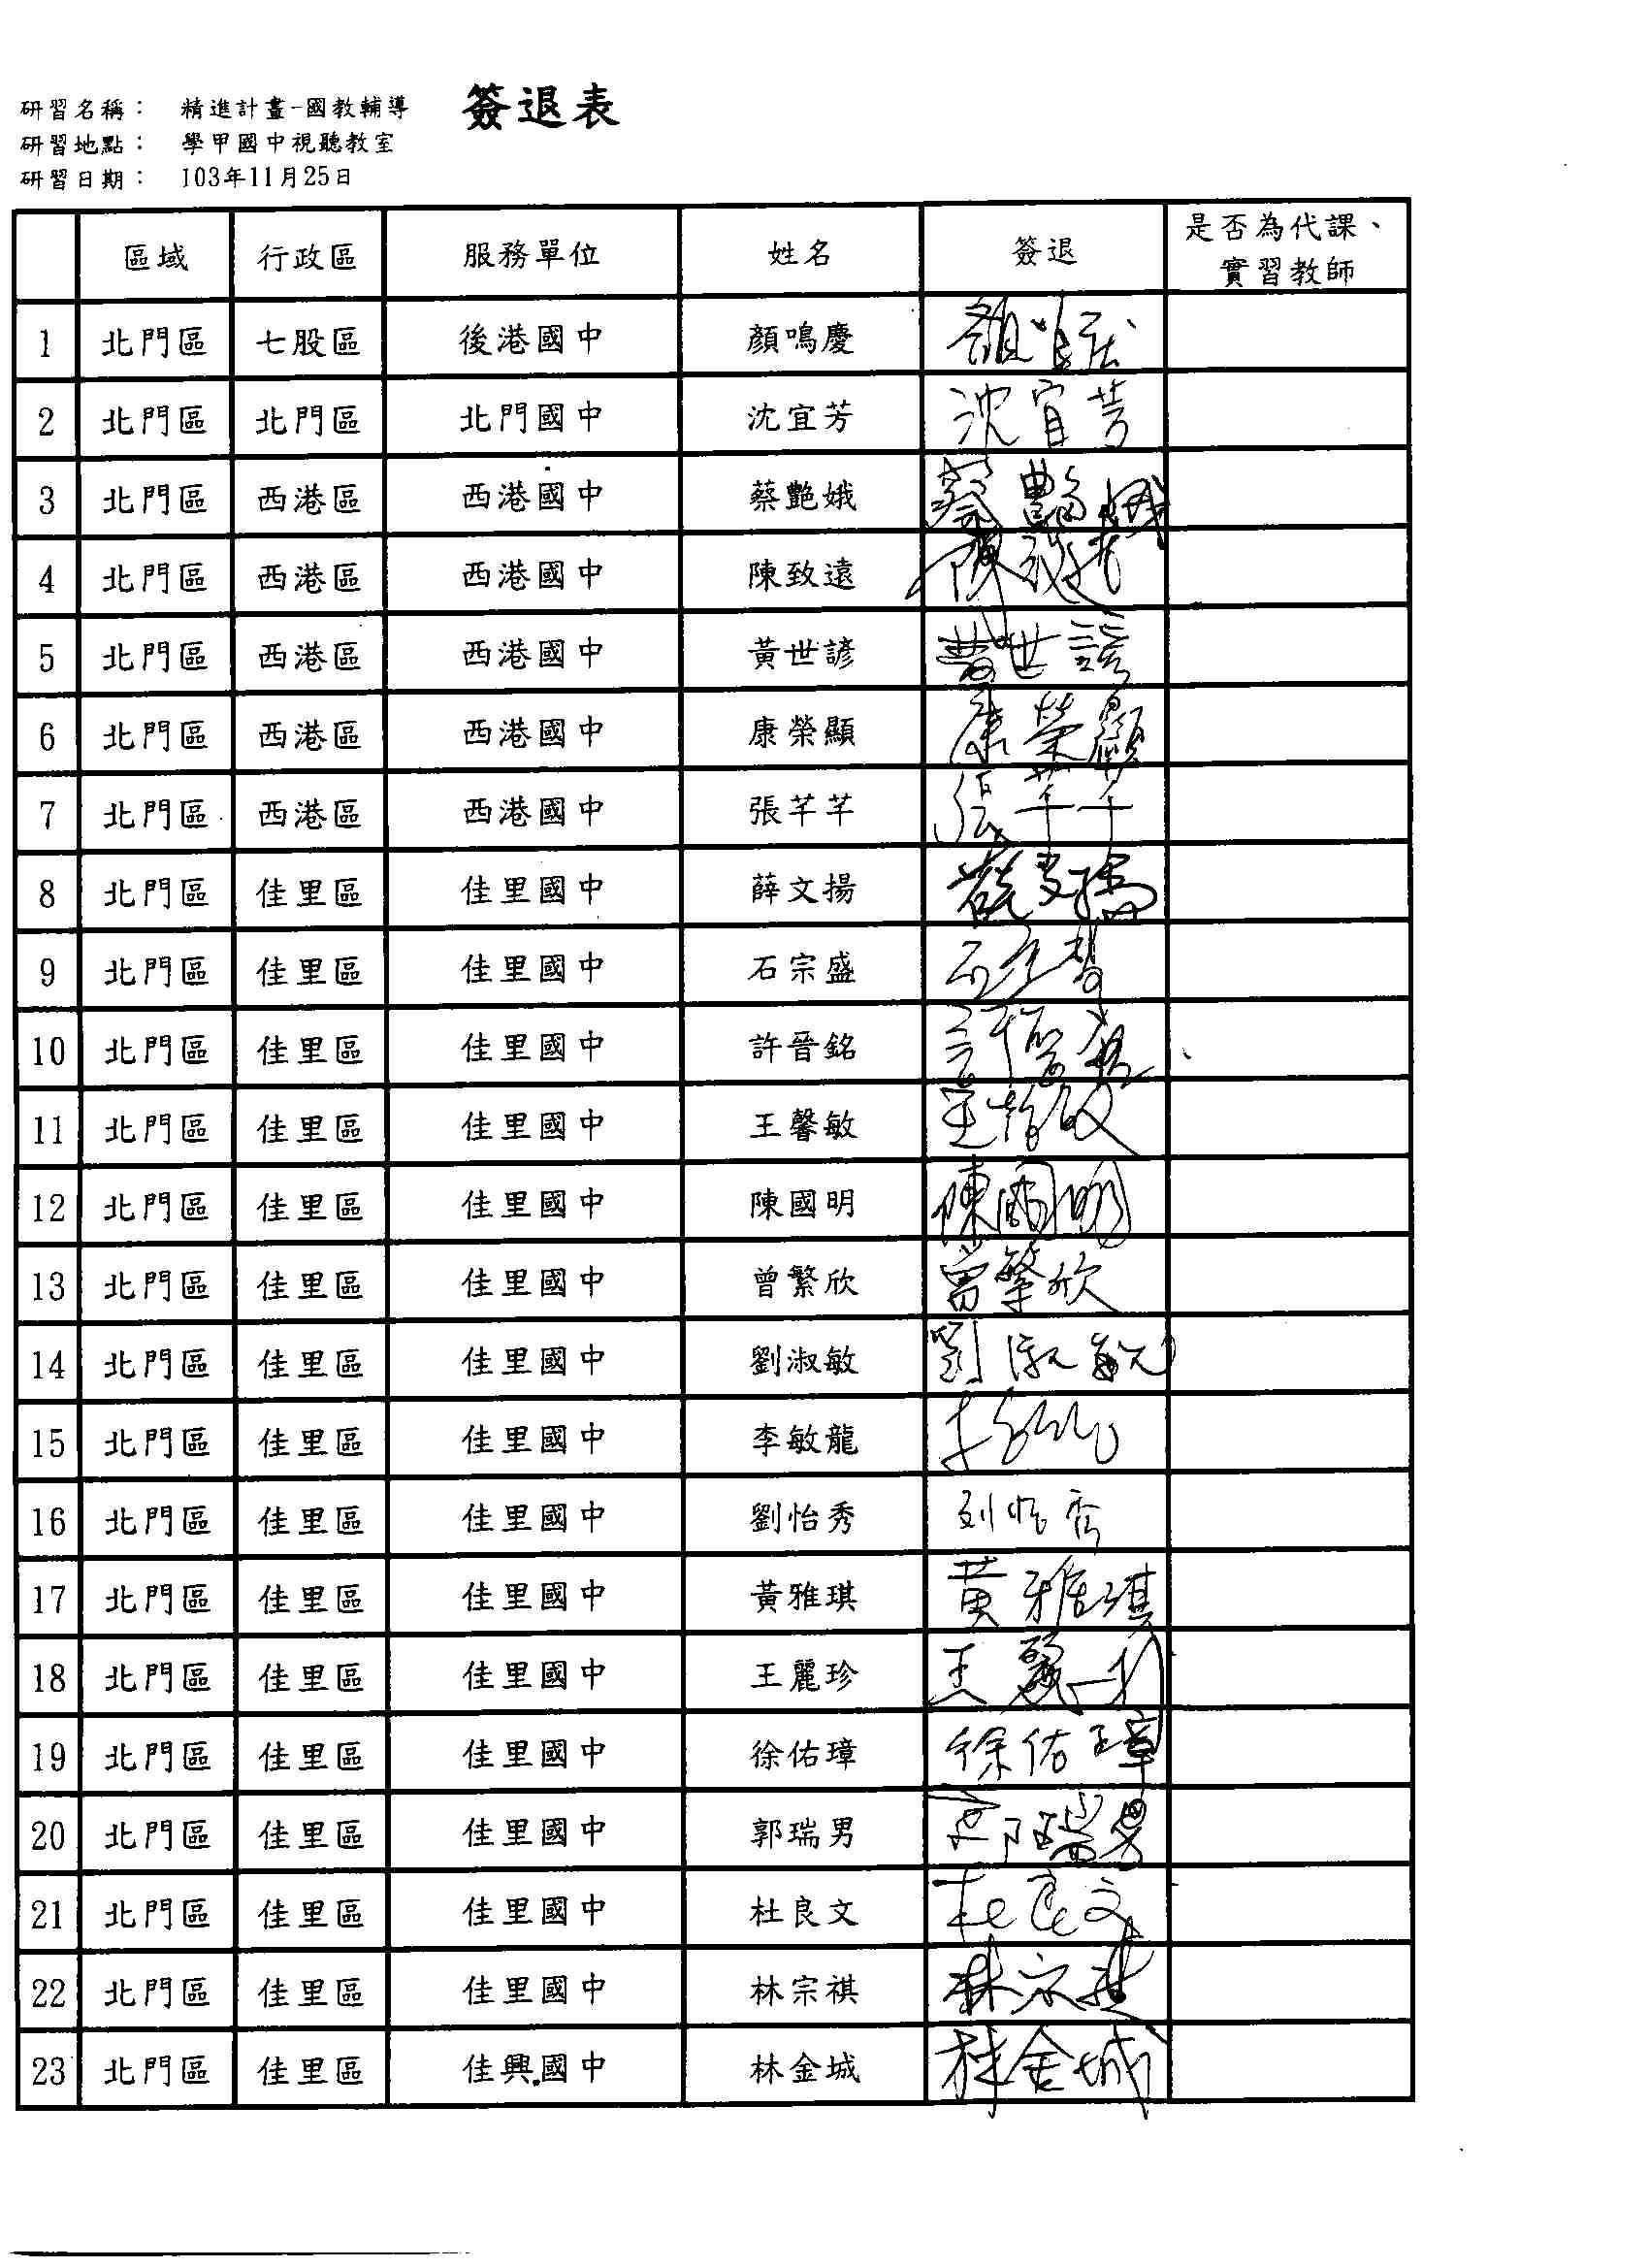 簽退表
研習名稱： 精進計畫-國教輔導
研習地點： 學甲國中視聽教室
研習日期： 103年11月25日
區域 行政區 服務單位 姓名 簽退 是否為代課、實習教師
1 北門區 七股區 後港國中 顏鳴慶
2 北門區 北門區 北門國中 沈宜芳 沈宜芳
3 北門區 西港區 西港國中 蔡艷娥 蔡艷娥
4 北門區 西港區 西港國中 陳致遠
5 北門區 西港區 西港國中 黃世諺 黃世諺
6 北門區 西港區 西港國中 康榮顯 康榮顯
7 北門區 西港區 西港國中 張芊芊 張芊芊
8 北門區 佳里區 佳里國中 薛文揚 薛文揚
9 北門區 佳里區 佳里國中 石宗盛
10 北門區 佳里區 佳里國中 許晉銘 許晉銘
11 北門區 佳里區 佳里國中 王馨敏
12 北門區 佳里區 佳里國中 陳國明 陳國明
13 北門區 佳里區 佳里國中 曾繁欣 曾繁欣
14 北門區 佳里區 佳里國中 劉淑敏 劉淑敏
15 北門區 佳里區 佳里國中 李敏龍
16 北門區 佳里區 佳里國中 劉怡秀 刘怡秀
17 北門區 佳里區 佳里國中 黃雅琪 黃雅琪
18 北門區 佳里區 佳里國中 王麗珍 王麗珍
19 北門區 佳里區 佳里國中 徐佑璋 徐佑璋
20 北門區 佳里區 佳里國中 郭瑞男 郭瑞男
21 北門區 佳里區 佳里國中 杜良文 杜良文
22 北門區 佳里區 佳里國中 林宗祺 林宗祺
23 北門區 佳里區 佳興國中 林金城 林金城